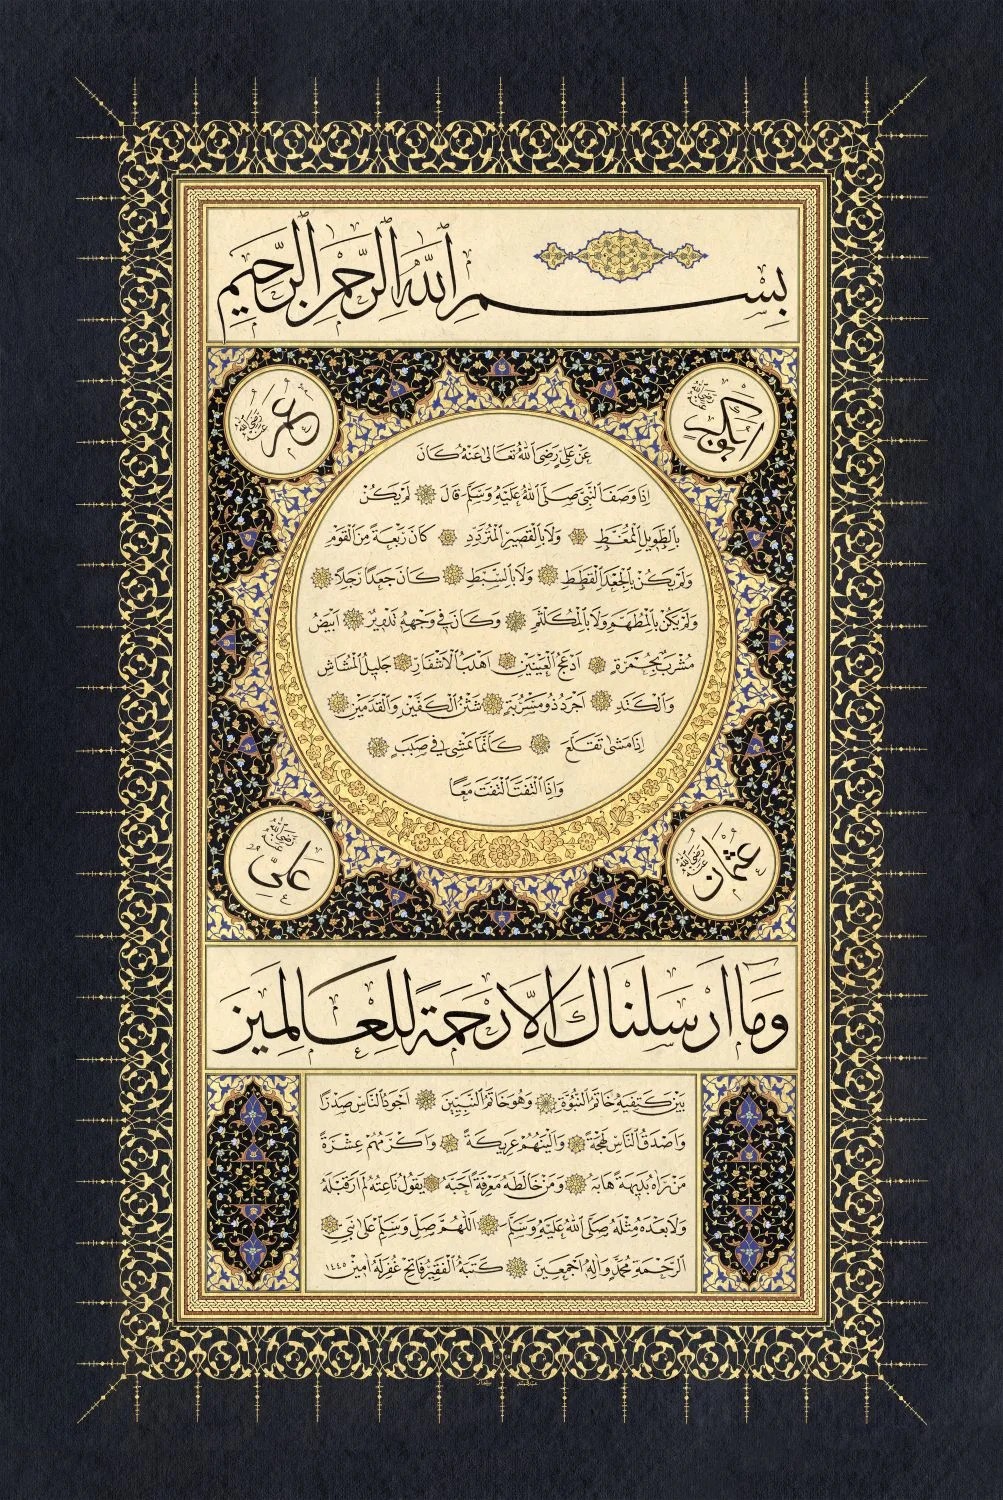 بِسْمِ اللّٰهِ الرَّحْمٰنِ الرَّحِيمِ
ابوبكر رضى الله عنه
عمر رضى الله عنه
عَنْ عَلِيٍّ رَضِىَ اللّٰهُ تَعَالٰى عَنْهُ كَانَ
اِذَا وَصَفَ النَّبِىَّ صَلَّى اللّٰهُ عَلَيْهِ وَسَلَّمَ قَالَ لَمْ يَكُنْ
بِالطَّوِيلِ الْمُمَّغَّطِ وَلَا بِالْقَصِيرِ الْمُتَرَدِّدِ كَانَ رَبْعَةً مِنَ الْقَوْمِ
وَلَمْ يَكُنْ بِالْجَعْدِ الْقَطَطِ وَلَا بِالسَّبْطِ كَانَ جَعْدًا رَجِلًا
وَلَمْ يَكُنْ بِالْمُطَهَّمِ وَلَا بِالْمُكَلْثَمِ وَكَانَ فِى وَجْهِهِ تَدْوِيرٌ اَبْيَضُ
مُشْرَبٌ بِحُمْرَةٍ اَدْعَجُ الْعَيْنَيْنِ اَهْدَبُ الْاَشْفَارِ جَلِيلُ الْمُشَاشِ
وَالْكَتَدِ اَجْرَدُ ذُو مَسْرُبَةٍ شَثْنُ الْكَفَّيْنِ وَالْقَدَمَيْنِ
اِذَا مَشٰى تَقَلَّعَ كَاَنَّمَا يَمْشِى فِى صَبَبٍ
وَاِذَا الْتَفَتَ الْتَفَتَ مَعًا
عثمان رضى الله عنه
على رضى الله عنه
وَمَا اَرْسَلْنَاكَ اِلَّا رَحْمَةً لِلْعَالَمِينَ
بَيْنَ كَتِفَيْهِ خَاتَمُ النُّبُوَّةِ وَهُوَ خَاتَمُ النَّبِيِّينَ اَجْوَدُ النَّاسِ صَدْرًا
وَاَصْدَقُ النَّاسِ لَهْجَةً وَاَلْيَنُهُمْ عَرِيكَةً وَاَكْرَمُهُمْ عِشْرَةً
مَنْ رَاٰهُ بَدِيهَةً هَابَهُ وَمَنْ خَالَطَهُ مَعْرِفَةً اَحَبَّهُ يَقُولُ نَاعِتُهُ لَمْ اَرَ قَبْلَهُ
وَلَا بَعْدَهُ مِثْلَهُ صَلَّى اللّٰهُ عَلَيْهِ وَسَلَّمَ اَللّٰهُمَّ صَلِّ وَسَلِّمْ عَلٰى نَبِىِّ
الرَّحْمَةِ مُحَمَّدٍ وَاٰلِهِ اَجْمَعِينَ كَتَبَهُ الْفَقِيرُ فَاتِحْ غُفِرَ لَهُ اٰمِينَ ١٤٤٥